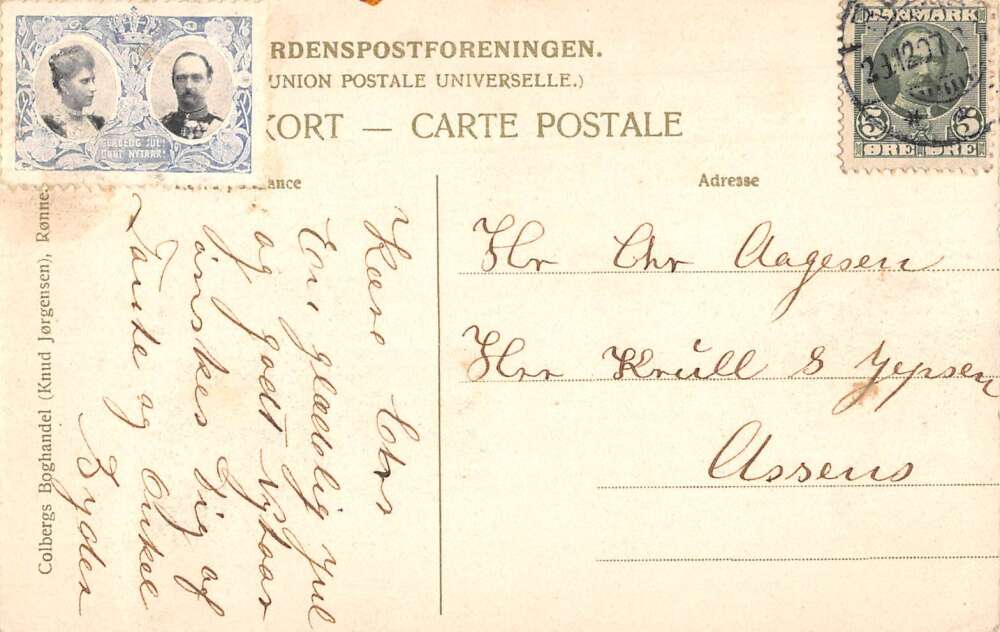 GLÆDELIG JUL
GODT NYTAAR!
RDENSPOSTFORENINGEN.
UNION POSTALE UNIVERSELLE.)
KORT — CARTE POSTALE
DANMARK
29.12.07
5 5
ØRE ØRE
ance
Adresse
Kære Chr
En glædelig Jul
og godt Nytaar
ønskes Dig af
Tante og Onkel
Hr Chr Aagesen
Hrr Krüll & Jepsen
Assens
Colbergs Boghandel (Knud Jørgensen), Rønne.